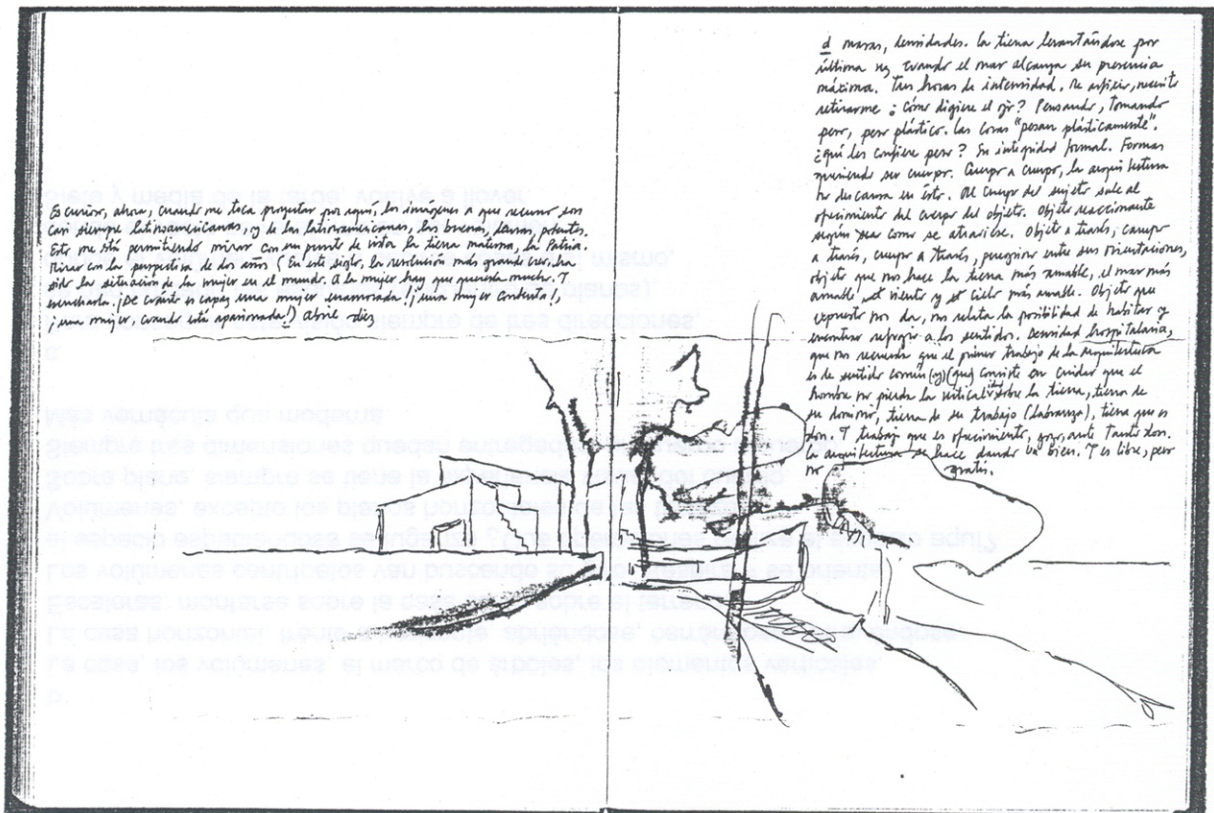 Es curioso, ahora, cuando me toca proyectar por aquí, las imágenes a que recurro son
casi siempre latinoamericanas, y de las latinoamericanas, las buenas,
Esto me está permitiendo mirar con un punto de vista la tierra materna, la Patria.
Mirar con la perspectiva de dos años (En este siglo, la revolución más grande
sido la situación de la mujer en el mundo. A la mujer hay que quererla mucho. Y
escucharla. ¡De cuánto es capaz una mujer enamorada!, ¡una mujer contenta!,
¡una mujer, cuando está apasionada!) Abril diez
d masas, densidades. La tierra levantándose por
última vez cuando el mar alcanza su presencia
máxima. Tres horas de intensidad. necesito
retirarme ¿Cómo digiere el ojo? Pensando, tomando
peso, peso plástico. Las cosas "pesan plásticamente".
¿qué les confiere peso? Su integridad formal. Formas
queriendo ser cuerpo. Cuerpo a cuerpo, la arquitectura
no descansa en esto. Al cuerpo del sujeto sale al
ofrecimiento del cuerpo del objeto. Objeto reaccionante
según sea como se atraviese. Objeto a través, campo
a través, cuerpo a través, peregrino entre sus orientaciones,
objeto que nos hace la tierra más amable, el mar más
amable, el viento y el cielo más amable. Objeto que
expuesto nos da, nos relata la posibilidad de habitar y
encontrar refugio a los sentidos. Densidad hospitalaria,
que nos recuerda que el primer trabajo de la arquitectura
es de sentido común (y) (que) consiste en cuidar que el
hombre no pierda la vertical sobre la tierra, tierra de
su dominio, tierra de su trabajo (labranza), tierra que es
don. Y trabajo que es ofrecimiento, gozo, ante tanto don.
La arquitectura se hace dando un bien. Y es libre, pero
no gratis.